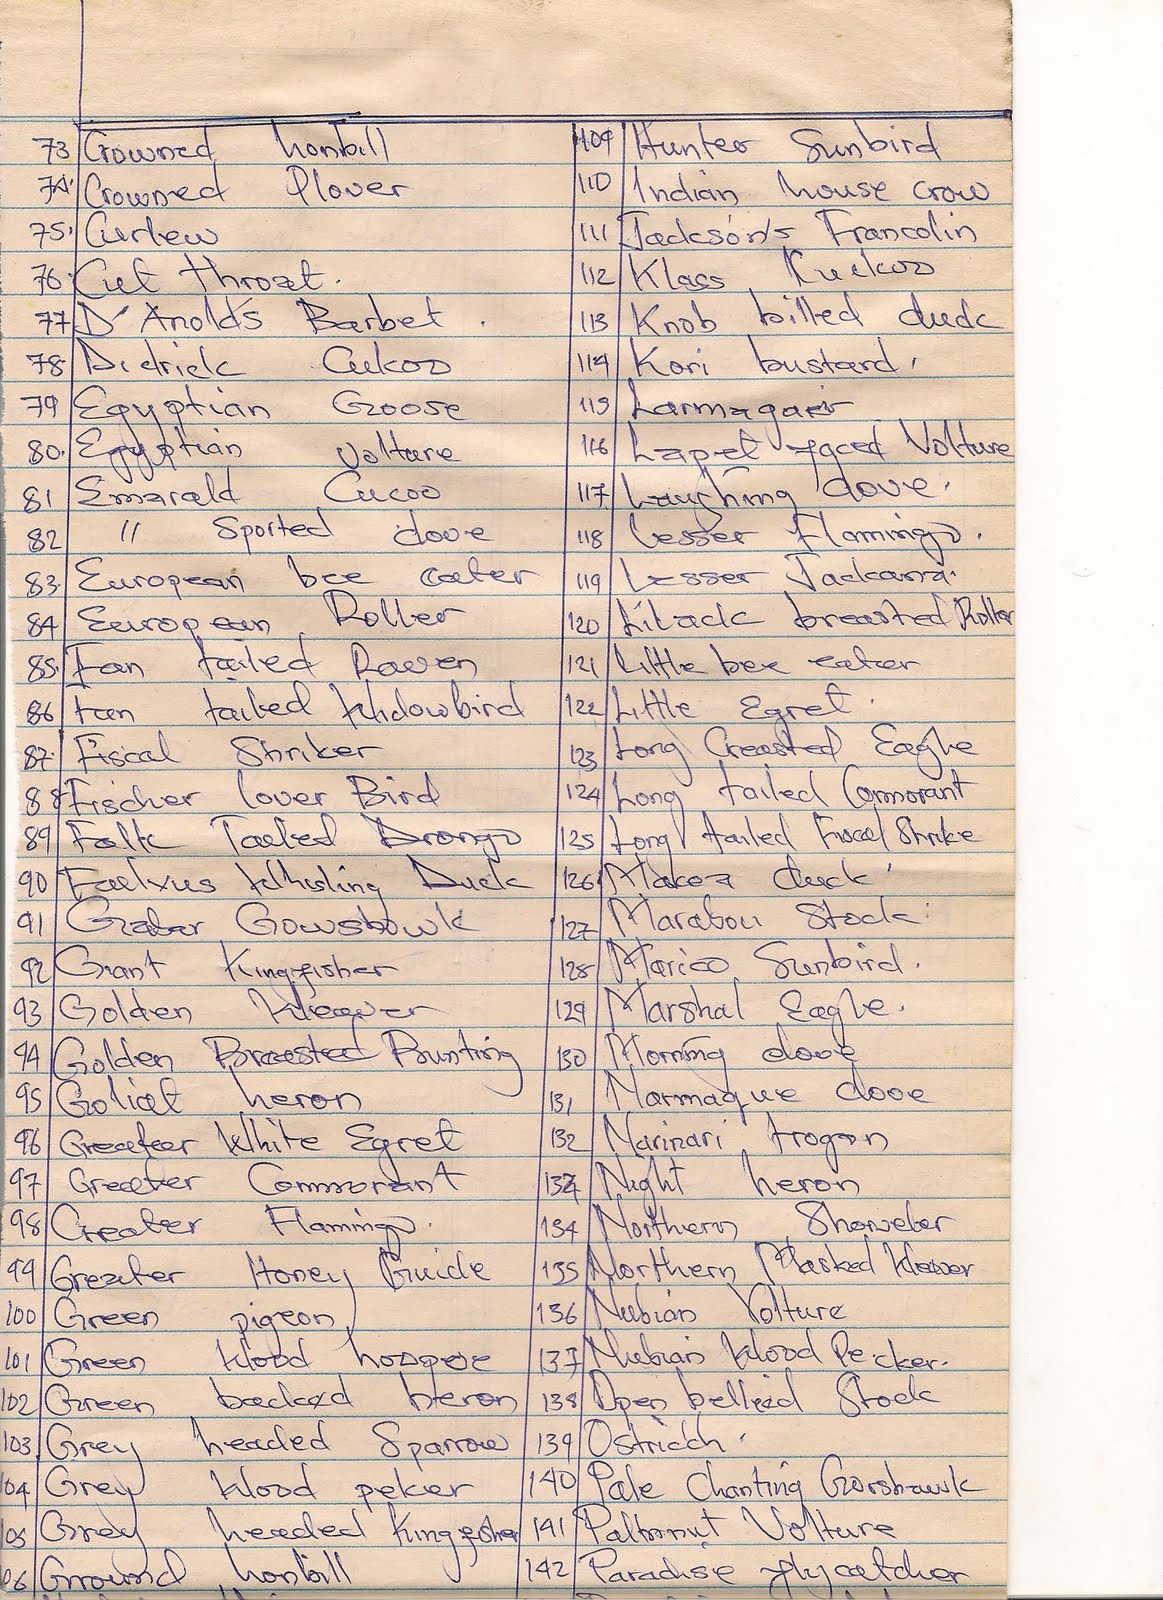 73 Crowned honbill
74. Crowned Plover
75. Curlew
76. Cut throat.
77 D'Anolds Barbet.
78 Didrick Cukoo
79 Egyptian Goose
80. Egyptian volture
81 Emarald Cucoo
82 " Sported dove
83. European bee eater
84 European Roller
85. Fan tailed Raven
86 Fan tailed Widowbird
87. Fiscal Shriker
88 Fischer lover Bird
89 Folk Tailed Drongo
90 Fulvus Whisling Duck
91 Gabar Gowshowk
92 Giant Kingfisher
93 Golden Weaver
94 Golden Breasted Bunting
95 Goliat heron
96 Greater White Egret
97 Greater Commorant
98 Greater Flamingo.
99 Greater Honey Guide
100 Green pigeon
101 Green Wood hoopoe
102 Green backed heron
103. Grey headed Sparrow
104 Grey Wood pecker
105 Grey headed Kingfisher
106 Ground honbill
109 Hunter Sunbird
110 Indian house crow
111 Jackson's Francolin
112 Klaas Kuckoo
113 Knob billed duck
114 Kori bustard.
115 Larmagaer
116 Lapet faced Volture
117. Laughing dove.
118 Lesser Flamingo.
119 Lesser Jackana.
120 Lilack breasted Roller
121 Little bee eater
122 Little Egret.
123 Long Creasted Eagle
124 Long tailed Cormorant
125 Long tailed Fiscal Shrike
126. Makoa duck
127 Marabou Stock.
128 Marico Sunbird.
129 Marshal Eagle.
130 Morning dove
131 Narmaque dove
132 Narinari trogon
133 Night heron
134 Northern Shoveler
135 Northern Masked Weaver
136 Nubian Volture
137 Nubian Wood Pecker.
138 Open bellied Stock
139 Ostrich.
140 Pale Chanting Gorshawk
141 Palmnut Volture
142 Paradise flycatcher